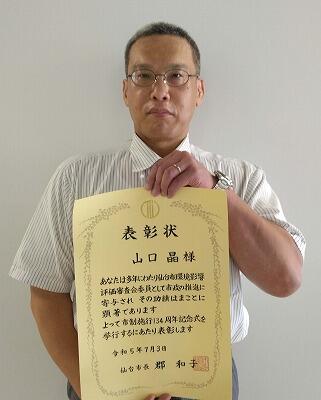 表彰状
山口 晶 様
あなたは多年にわたり仙台市環境影響
評価審査会委員として市政の推進に
寄与され その功績はまことに
顕著であります
よって市制施行134周年記念式を
挙行するにあたり表彰します
令和5年7月3日
仙台市長 郡 和子